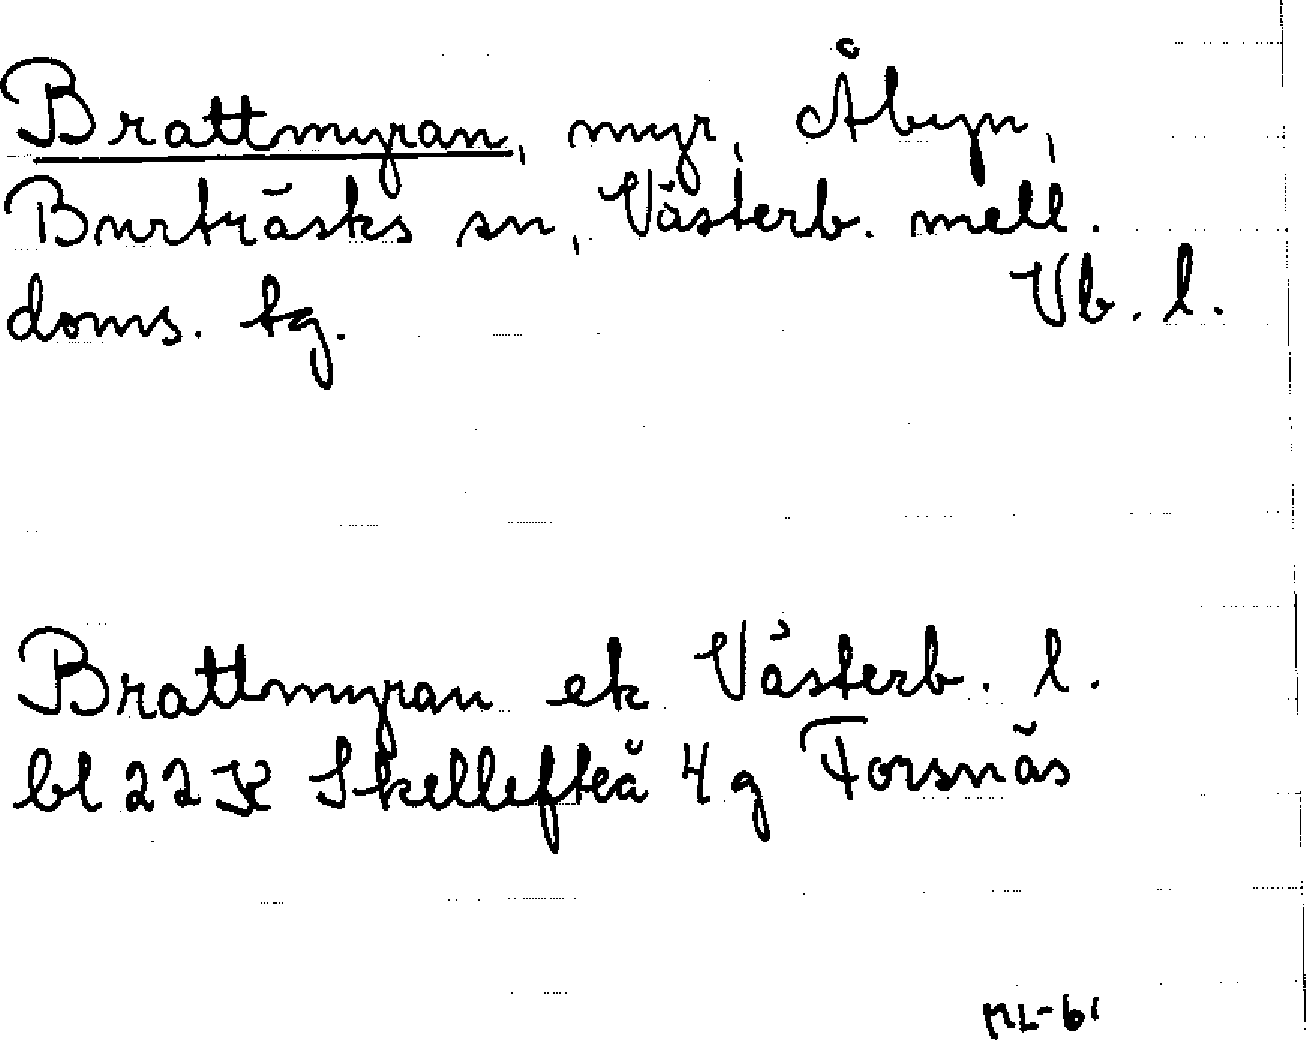 Brattmyran, myr, Åbyn,
Burträsks sn, Västerb. mell.
doms. tg. Vb. l.
Brattmyran ek Västerb. l.
bl 22 K Skellefteå 4 g Forsnäs
ML-61